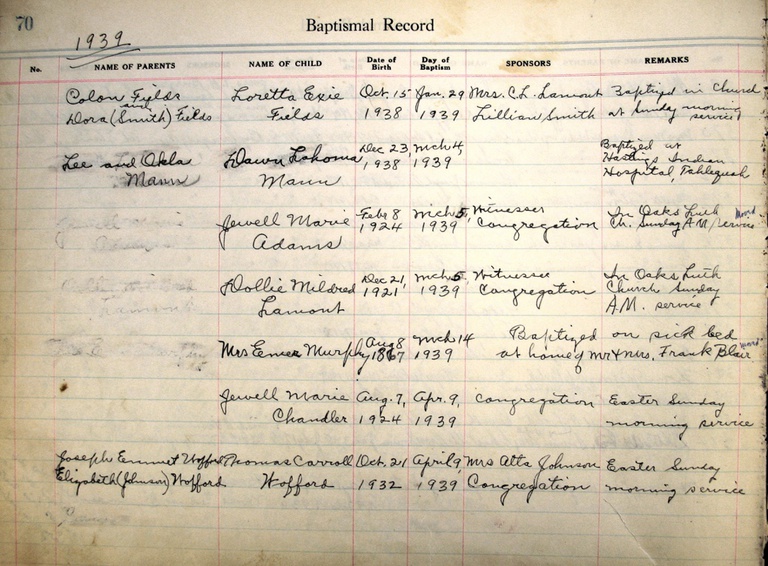 70
Baptismal Record
1939
No.
NAME OF PARENTS
NAME OF CHILD
Date of Birth
Day of Baptism
SPONSORS
REMARKS
Colon Fields Loretta Exie Oct. 15 Jan. 29 Mrs. C.L. Lamont Baptized in Church
and
Dora (Smith) Fields Fields 1938 1939 Lillian Smith at Sunday morning service
Lee and Okla Dawn Lahoma Dec 23, Mch 4, Baptized at
Mann Mann 1938 1939 Hastings Indian
Hospital, Tahlequah
Jewell Marie Feb. 8 Mch 5, Witnesses In Oaks Luth
Adams 1924 1939 Congregation Ch. Sunday A.M. service
Dollie Mildred Dec 21, Mch 5, Witnesses In Oaks Luth
Lamont 1921 1939 Congregation Church Sunday
A.M. service
Mrs Murphy Aug 8 1867 Mch 14 1939 Baptized on sick bed
at home of Mr & Mrs. Frank Blair
Jewell Marie Aug. 7, Apr. 9, congregation Easter Sunday
Chandler 1924 1939 morning service
Joseph Emmet Wofford Thomas Carroll Oct. 21 April 9, Mrs Atta Johnson Easter Sunday
Elizabeth (Johnson) Wofford Wofford 1932 1939 Congregation morning service